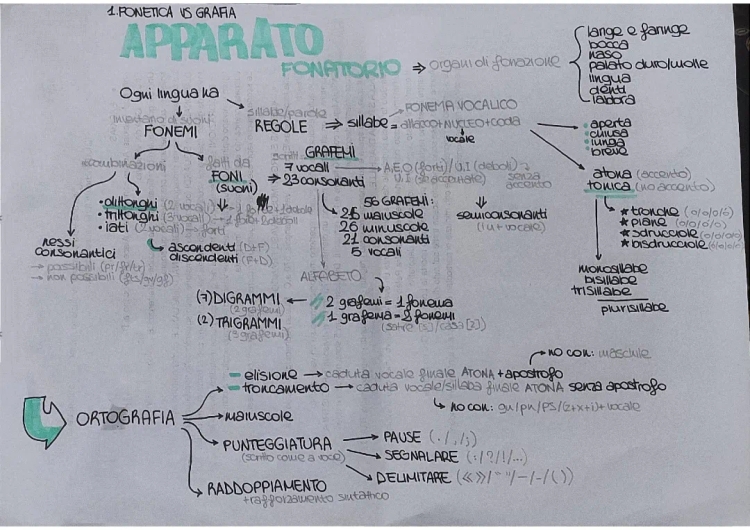 1. FONETICA VS GRAFIA
APPARATO
FONATORIO ⇒ organi di fonazione
lange e faringe
bocca
naso
palato duro/molle
lingua
denti
labbra
Ogni lingua ha
inventario di suoni
FONEMI
sillabe/parole
REGOLE ⇒ sillabe = attacco+NUCLEO+coda
FONEMA VOCALICO
vocale
• aperta
• chiusa
• lunga
• breve
atona (accento)
tonica (no accento)
★ tronche
★ piane
★ sdrucciole
★ bisdrucciole
monosillabe
bisillabe
trisillabe
plurisillabe
combinazioni
fatti da
FONI
(suoni)
• dittonghi (2 vocali)
• trittonghi (3 vocali)
• iati (2 vocali) → forti
ascendenti (D+F)
discendenti (F+D)
nessi
consonantici
→ possibili
→ non possibili
scritti
GRAFEMI
7 vocali → A,E,O (forti) / U,I (deboli)
⇒ 23 consonanti
senza
accento
semiconsonanti
(iu + vocale)
56 GRAFEMI:
26 maiuscole
26 minuscole
21 consonanti
5 vocali
ALFABETO
(7) DIGRAMMI
(2 grafemi)
(2) TRIGRAMMI
(3 grafemi)
2 grafemi = 1 fonema
1 grafema = 2 fonemi
ORTOGRAFIA
elisione → caduta vocale finale ATONA + apostrofo
no con: maschile
troncamento → caduta vocale/sillaba finale ATONA senza apostrofo
no con: gn/pn/ps/(z+x+i)+ vocale
maiuscole
PUNTEGGIATURA
(scritto come a voce)
PAUSE (. / , / ;)
SEGNALARE (: / ? / ! / ...)
DELIMITARE (« » / " " / - / - / ( ))
RADDOPPIAMENTO
+rafforzamento sintattico